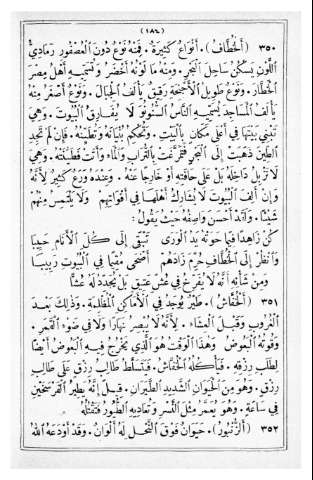 (١٨٤)
٣٥٠ (أَلْخُطَّافُ). أَنْوَاعٌ كَثِيرَةٌ. فَمِنْهُ نَوْعٌ دُونَ ٱلْعُصْفُورِ رَمَادِيُّ
ٱللَّوْنِ يَسْكُنُ سَاحِلَ ٱلْبَحْرِ. وَمِنْهُ مَا لَوْنُهُ أَخْضَرُ وَتُسَمِّيهِ أَهْلُ مِصْرَ
ٱلْخُطَّارَ. وَنَوْعٌ طَوِيلُ ٱلْأَجْنِحَةِ رَقِيقٌ يَأْلَفُ ٱلْجِبَالَ. وَنَوْعٌ أَصْغَرُ مِنْهُ
يَأْلَفُ ٱلْمَسَاجِدَ يُسَمِّيهِ ٱلنَّاسُ ٱلسُّنُونُوَ لَا يُفَارِقُ ٱلْبُيُوتَ. وَهِيَ
تَبْنِي بَيْتَهَا فِي أَعْلَى مَكَانٍ بِٱلْبَيْتِ. وَتُحْكِمُ بُنْيَانَهُ وَتُطَيِّنُهُ. فَإِنْ لَمْ تَجِدِ
ٱلطِّينَ ذَهَبَتْ إِلَى ٱلْبَحْرِ فَتَمَرَّغَتْ بِٱلتُّرَابِ وَٱلْمَاءِ وَأَتَتْ فَطَيَّنَتْهُ. وَهِيَ
لَا تُزَبِّلُ دَاخِلَهُ بَلْ عَلَى حَافَّتِهِ أَوْ خَارِجًا عَنْهُ. وَعِنْدَهُ وَرَعٌ كَثِيرٌ لِأَنَّهُ
وَإِنْ أَلِفَ ٱلْبُيُوتَ لَا يُشَارِكُ أَهْلَهَا فِي أَقْوَاتِهِمْ وَلَا يَلْتَمِسُ مِنْهُمْ
شَيْئًا. وَلَقَدْ أَحْسَنَ وَاصِفُهُ حَيْثُ يَقُولُ:
كُنْ زَاهِدًا فِيمَا حَوَتْهُ يَدُ ٱلْوَرَى تَبْقَى إِلَى كُلِّ ٱلْأَنَامِ حَبِيبَا
وَٱنْظُرْ إِلَى ٱلْخُطَّافِ حُرِّمَ زَادَهُمْ أَضْحَى مُقِيمًا فِي ٱلْبُيُوتِ رَبِيبَا
وَمِنْ شَأْنِهِ أَنَّهُ لَا يُفَرِّخُ فِي عُشٍّ عَتِيقٍ بَلْ يُجَدِّدُ لَهُ عُشًّا
٣٥١ (أَلْخُفَّاشُ). طَيْرٌ يُوجَدُ فِي ٱلْأَمَاكِنِ ٱلْمُظْلِمَةِ. وَذٰلِكَ بَعْدَ
ٱلْغُرُوبِ وَقَبْلَ ٱلْعِشَاءِ. لِأَنَّهُ لَا يُبْصِرُ نَهَارًا وَلَا فِي ضَوْءِ ٱلْقَمَرِ.
وَقُوتُهُ ٱلْبَعُوضُ وَهٰذَا ٱلْوَقْتُ هُوَ ٱلَّذِي يَخْرُجُ فِيهِ ٱلْبَعُوضُ أَيْضًا
لِطَلَبِ رِزْقِهِ. فَيَأْكُلُهُ ٱلْخُفَّاشُ. فَيَتَسَلَّطُ طَالِبُ رِزْقٍ عَلَى طَالِبِ
رِزْقٍ. وَهُوَ مِنَ ٱلْحَيَوَانِ ٱلشَّدِيدِ ٱلطَّيَرَانِ. قِيلَ إِنَّهُ يَطِيرُ ٱلْفَرْسَخَيْنِ
فِي سَاعَةٍ. وَهُوَ يُعَمَّرُ مِثْلَ ٱلنَّسْرِ وَتُعَادِيهِ ٱلطُّيُورُ فَتَقْتُلُهُ
٣٥٢ (أَلزُّنْبُورُ). حَيَوَانٌ فَوْقَ ٱلنَّحْلِ لَهُ أَلْوَانٌ. وَقَدْ أَوْدَعَهُ ٱللهُ